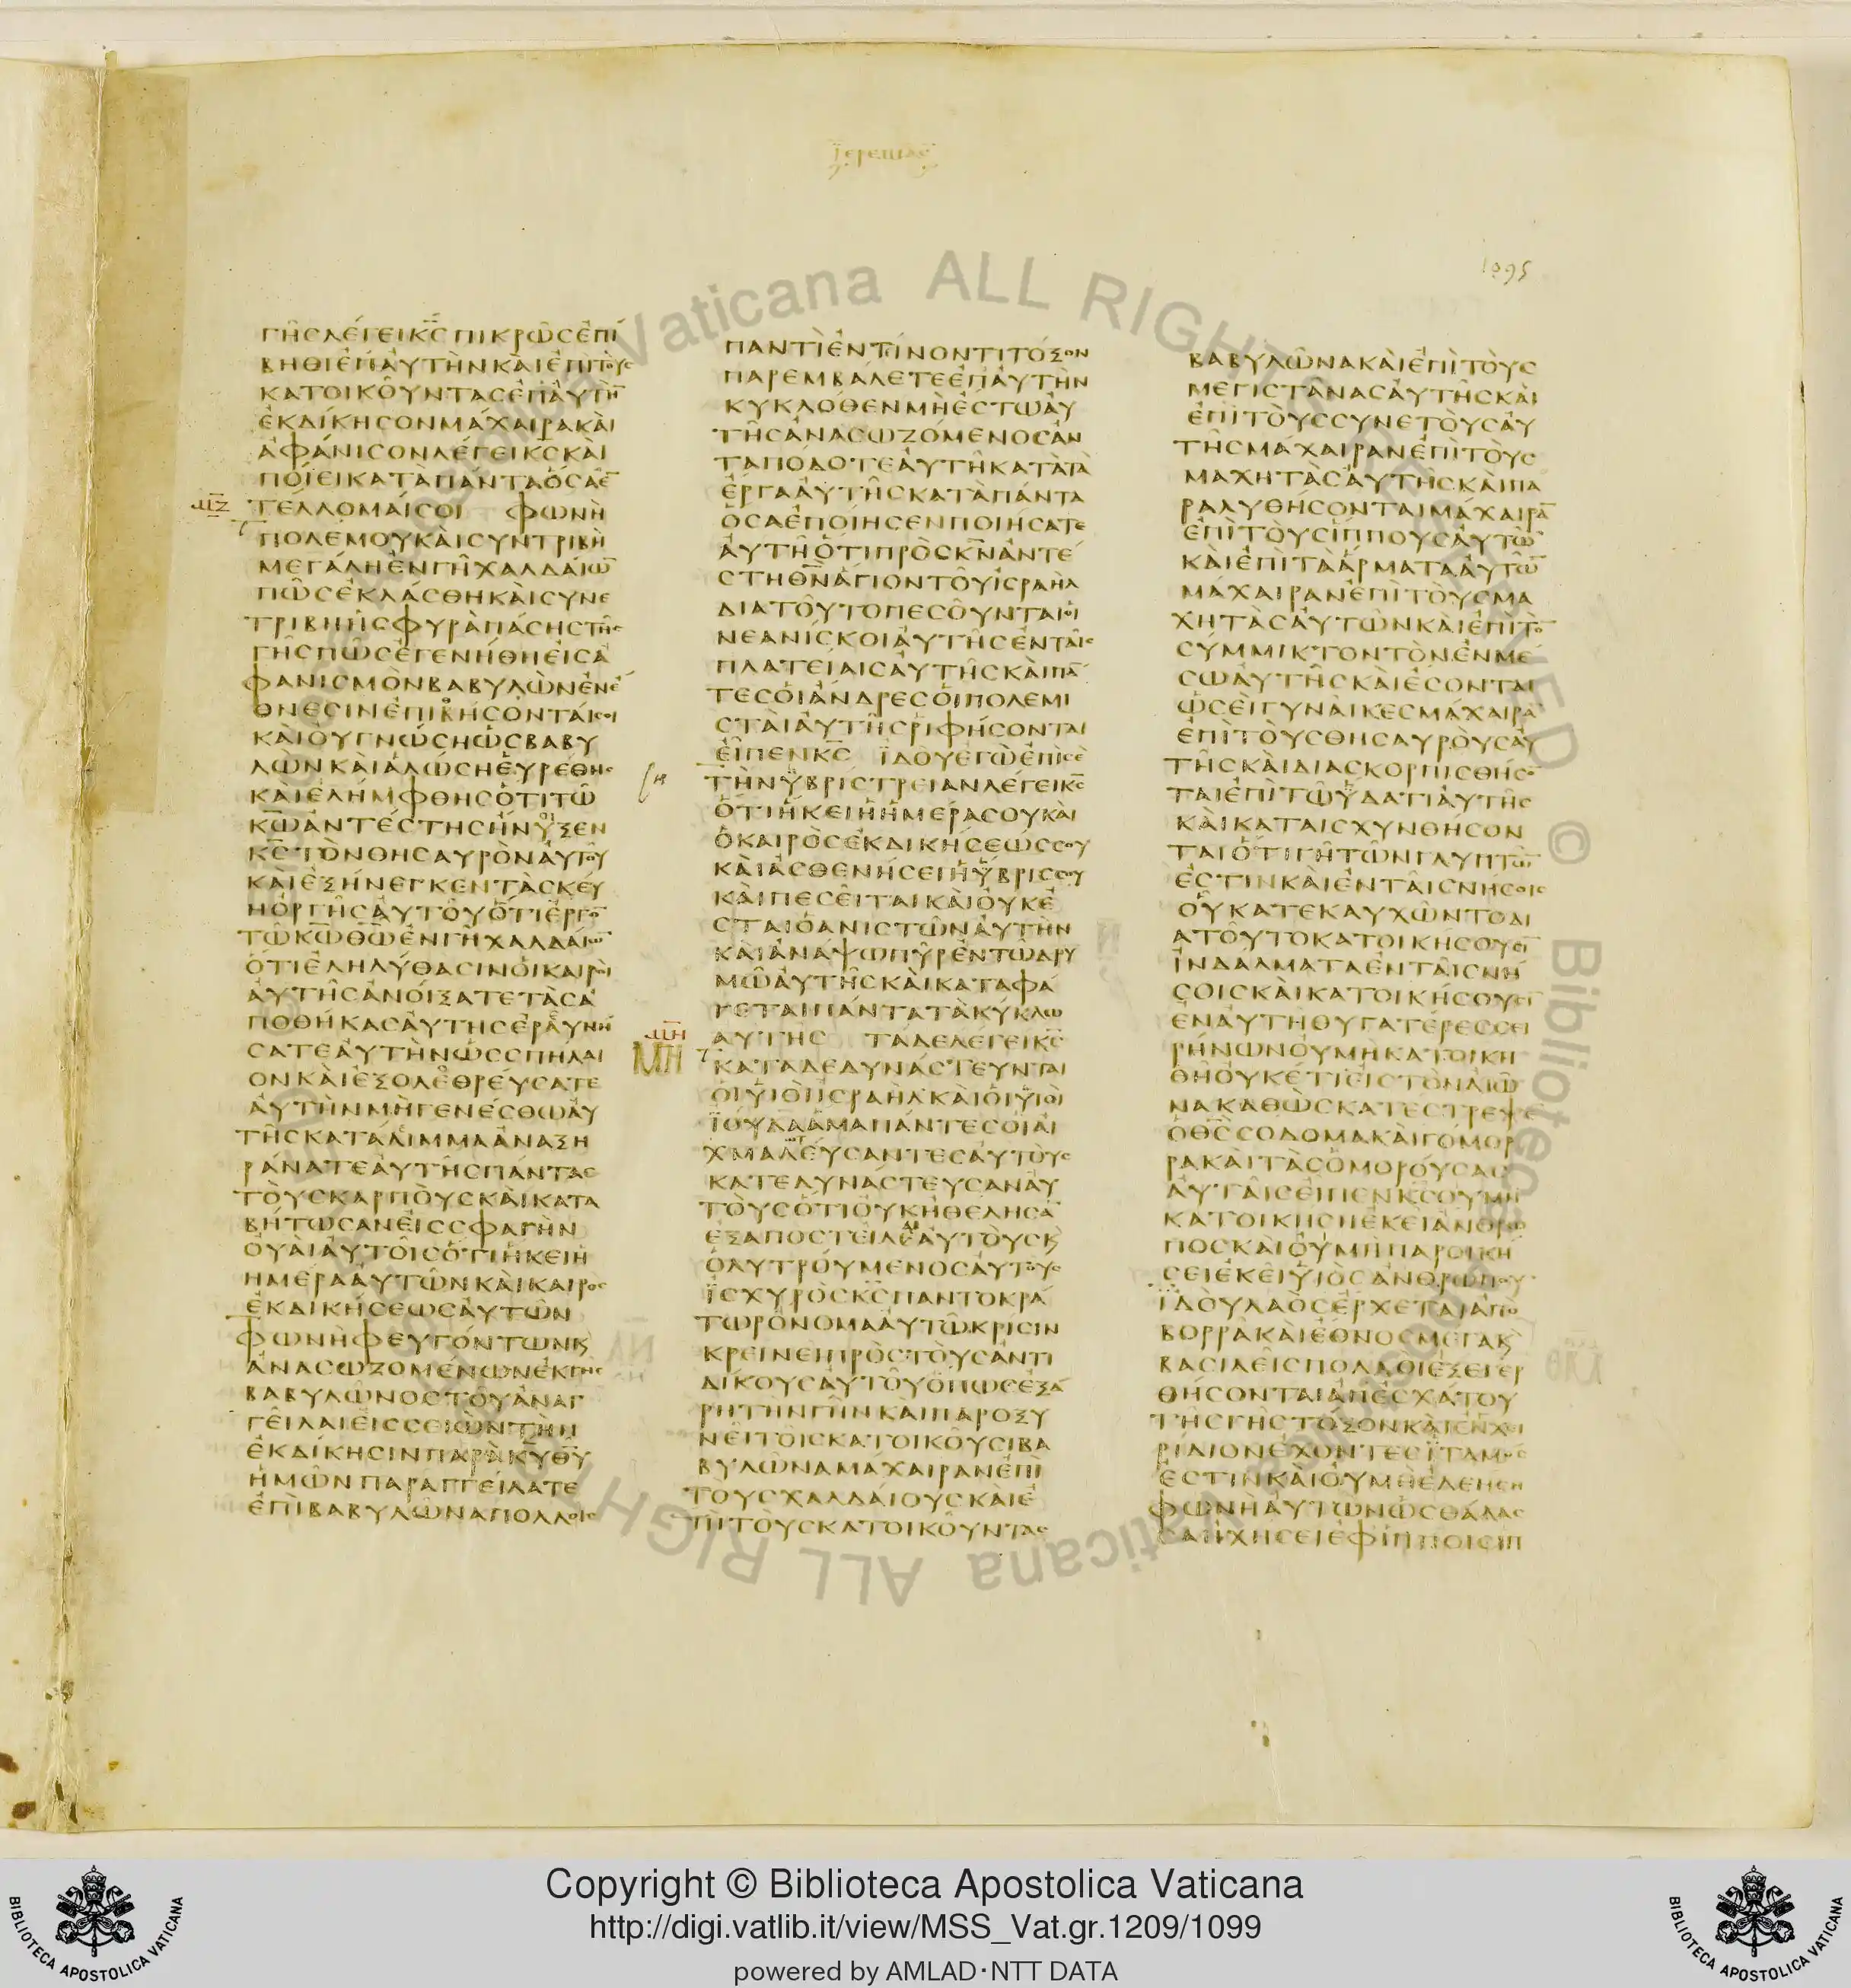 Ϊερεμιας
1095
ΓΗϹΛΕΓΕΙΚ̅Ϲ̅ΠΙΚΡΩϹΕΠΙ
ΒΗΘΙΕΠΑΥΤΗΝΚΑΙΕΠΙΤΟΥϹ
ΚΑΤΟΙΚΟΥΝΤΑϹΕΠΑΥΤΗ̅
ΕΚΔΙΚΗϹΟΝΜΑΧΑΙΡΑΚΑΙ
ΑΦΑΝΙϹΟΝΛΕΓΕΙΚ̅Ϲ̅ΚΑΙ
ΠΟΙΕΙΚΑΤΑΠΑΝΤΑΟϹΑΕ̅
ΤΕΛΛΟΜΑΙϹΟΙ ΦΩΝΗ
ΠΟΛΕΜΟΥΚΑΙϹΥΝΤΡΙΒΗ
ΜΕΓΑΛΗΕΝΓΗΧΑΛΔΑΙΩ̅
ΠΩϹΕΚΛΑϹΘΗΚΑΙϹΥΝΕ
ΤΡΙΒΗΗϹΦΥΡΑΠΑϹΗϹΤΗϹ
ΓΗϹΠΩϹΕΓΕΝΗΘΗΕΙϹΑ
ΦΑΝΙϹΜΟΝΒΑΒΥΛΩΝΕΝΕ
ΘΝΕϹΙΝΕΠΙΘΗϹΟΝΤΑΙϹΟΙ
ΚΑΙΟΥΓΝΩϹΗΩϹΒΑΒΥ
ΛΩΝΚΑΙΑΛΩϹΗΕΥΡΕΘΗϹ
ΚΑΙΕΛΗΜΦΘΗϹΟΤΙΤΩ
Κ̅Ω̅ΑΝΤΕϹΤΗϹΗΝΟΙΞΕΝ
Κ̅Ϲ̅ΤΟΝΘΗϹΑΥΡΟΝΑΥΤΟΥ
ΚΑΙΕΞΗΝΕΓΚΕΝΤΑϹΚΕΥ
ΗΟΡΓΗϹΑΥΤΟΥΟΤΙΕΡΓΟ̅
ΤΩΚ̅Ω̅Θ̅Ω̅ΕΝΓΗΧΑΛΔΑΙΩ̅
ΟΤΙΕΛΗΛΥΘΑϹΙΝΟΙΚΑΙΡΟΙ
ΑΥΤΗϹΑΝΟΙΞΑΤΕΤΑϹΑ
ΠΟΘΗΚΑϹΑΥΤΗϹΕΡΑΥΝΗ
ϹΑΤΕΑΥΤΗΝΩϹϹΠΗΛΑΙ
ΟΝΚΑΙΕΞΟΛΕΘΡΕΥϹΑΤΕ
ΑΥΤΗΝΜΗΓΕΝΕϹΘΩΑΥ
ΤΗϹΚΑΤΑΛΙΜΜΑΑΝΑΞΗ
ΡΑΝΑΤΕΑΥΤΗϹΠΑΝΤΑϹ
ΤΟΥϹΚΑΡΠΟΥϹΚΑΙΚΑΤΑ
ΒΗΤΩϹΑΝΕΙϹϹΦΑΓΗΝ
ΟΥΑΙΑΥΤΟΙϹΟΤΙΗΚΕΙΗ
ΗΜΕΡΑΑΥΤΩΝΚΑΙΚΑΙΡΟϹ
ΕΚΔΙΚΗϹΕΩϹΑΥΤΩΝ
ΦΩΝΗΦΕΥΓΟΝΤΩΝΚ
ΑΝΑϹΩΖΟΜΕΝΩΝΕΚΓΗϹ
ΒΑΒΥΛΩΝΟϹΤΟΥΑΝΑΓ
ΓΕΙΛΑΙΕΙϹϹΕΙΩΝΤΗΝ
ΕΚΔΙΚΗϹΙΝΠΑΡΑΚ̅Υ̅Θ̅Υ̅
ΗΜΩΝΠΑΡΑΓΓΕΙΛΑΤΕ
ΕΠΙΒΑΒΥΛΩΝΑΠΟΛΛΟΙϹ
Μ̅Ζ̅
ΠΑΝΤΙΕΝΤΙΝΟΝΤΙΤΟΞΟΝ
ΠΑΡΕΜΒΑΛΕΤΕΕΠΑΥΤΗΝ
ΚΥΚΛΟΘΕΝΜΗΕϹΤΩΑΥ
ΤΗϹΑΝΑϹΩΖΟΜΕΝΟϹΑΝ
ΤΑΠΟΔΟΤΕΑΥΤΗΚΑΤΑΤΑ
ΕΡΓΑΑΥΤΗϹΚΑΤΑΠΑΝΤΑ
ΟϹΑΕΠΟΙΗϹΕΝΠΟΙΗϹΑΤΕ
ΑΥΤΗΟΤΙΠΡΟϹΚ̅Ν̅ΑΝΤΕ
ϹΤΗΘ̅Ν̅ΑΓΙΟΝΤΟΥΙϹΡΑΗΛ
ΔΙΑΤΟΥΤΟΠΕϹΟΥΝΤΑΙΟΙ
ΝΕΑΝΙϹΚΟΙΑΥΤΗϹΕΝΤΑΙϹ
ΠΛΑΤΕΙΑΙϹΑΥΤΗϹΚΑΙΠΑ̅
ΤΕϹΟΙΑΝΔΡΕϹΟΙΠΟΛΕΜΙ
ϹΤΑΙΑΥΤΗϹΡΙΦΗϹΟΝΤΑΙ
ΕΙΠΕΝΚ̅Ϲ̅ ΪΔΟΥΕΓΩΕΠΙϹΕ
ΤΗΝΥΒΡΙϹΤΡΕΙΑΝΛΕΓΕΙΚ̅Ϲ̅
ΟΤΙΗΚΕΙΗΗΜΕΡΑϹΟΥΚΑΙ
ΟΚΑΙΡΟϹΕΚΔΙΚΗϹΕΩϹϹΟΥ
ΚΑΙΑϹΘΕΝΗϹΕΙΗΥΒΡΙϹϹΟΥ
ΚΑΙΠΕϹΕΙΤΑΙΚΑΙΟΥΚΕ
ϹΤΑΙΟΑΝΙϹΤΩΝΑΥΤΗΝ
ΚΑΙΑΝΑΨΩΠΥΡΕΝΤΩΔΡΥ
ΜΩΑΥΤΗϹΚΑΙΚΑΤΑΦΑ
ΓΕΤΑΙΠΑΝΤΑΤΑΚΥΚΛΩ
ΑΥΤΗϹ ΤΑΔΕΛΕΓΕΙΚ̅Ϲ̅
ΚΑΤΑΔΕΔΥΝΑϹΤΕΥΝΤΑΙ
ΟΙΥΙΟΙΙϹΡΑΗΛΚΑΙΟΙΥΙΟΙ
ΪΟΥΔΑΑΜΑΠΑΝΤΕϹΟΙΑΙ
ΧΜΑΛΕΥϹΑΝΤΕϹΑΥΤΟΥϹ
ΚΑΤΕΔΥΝΑϹΤΕΥϹΑΝΑΥ
ΤΟΥϹΟΤΙΟΥΚΗΘΕΛΗϹΑ̅
ΕΞΑΠΟϹΤΕΙΛΕΑΥΤΟΥϹΚ
ΟΛΥΤΡΟΥΜΕΝΟϹΑΥΤΟΥϹ
ΪϹΧΥΡΟϹΚ̅Ϲ̅ΠΑΝΤΟΚΡΑ
ΤΩΡΟΝΟΜΑΑΥΤΩΚΡΙϹΙΝ
ΚΡΕΙΝΕΙΠΡΟϹΤΟΥϹΑΝΤΙ
ΔΙΚΟΥϹΑΥΤΟΥΟΠΩϹΕΞΑ
ΡΗΤΗΝΓΗΝΚΑΙΠΑΡΟΞΥ
ΝΕΙΤΟΙϹΚΑΤΟΙΚΟΥϹΙΒΑ
ΒΥΛΩΝΑΜΑΧΑΙΡΑΝΕΠΙ
ΤΟΥϹΧΑΛΔΑΙΟΥϹΚΑΙΕ
ΠΙΤΟΥϹΚΑΤΟΙΚΟΥΝΤΑϹ
Μ̅Η̅
Μ̅Η̅
ΒΑΒΥΛΩΝΑΚΑΙΕΠΙΤΟΥϹ
ΜΕΓΙϹΤΑΝΑϹΑΥΤΗϹΚΑΙ
ΕΠΙΤΟΥϹϹΥΝΕΤΟΥϹΑΥ
ΤΗϹΜΑΧΑΙΡΑΝΕΠΙΤΟΥϹ
ΜΑΧΗΤΑϹΑΥΤΗϹΚΑΙΠΑ
ΡΑΛΥΘΗϹΟΝΤΑΙΜΑΧΑΙΡΑ̅
ΕΠΙΤΟΥϹΙΠΠΟΥϹΑΥΤΩ̅
ΚΑΙΕΠΙΤΑΑΡΜΑΤΑΑΥΤΩ̅
ΜΑΧΑΙΡΑΝΕΠΙΤΟΥϹΜΑ
ΧΗΤΑϹΑΥΤΩΝΚΑΙΕΠΙΤΟ̅
ϹΥΜΜΙΚΤΟΝΤΟΝΕΝΜΕ
ϹΩΑΥΤΗϹΚΑΙΕϹΟΝΤΑΙ
ΩϹΕΙΓΥΝΑΙΚΕϹΜΑΧΑΙΡΑ̅
ΕΠΙΤΟΥϹΘΗϹΑΥΡΟΥϹΑΥ
ΤΗϹΚΑΙΔΙΑϹΚΟΡΠΙϹΘΗϹΟ̅
ΤΑΙΕΠΙΤΩΥΔΑΤΙΑΥΤΗϹ
ΚΑΙΚΑΤΑΙϹΧΥΝΘΗϹΟΝ
ΤΑΙΟΤΙΓΗΤΩΝΓΛΥΠΤΩ̅
ΕϹΤΙΝΚΑΙΕΝΤΑΙϹΝΗϹΟΙϹ
ΟΥΚΑΤΕΚΑΥΧΩΝΤΟΔΙ
ΑΤΟΥΤΟΚΑΤΟΙΚΗϹΟΥϹΙ̅
ΙΝΔΑΛΜΑΤΑΕΝΤΑΙϹΝΗ
ϹΟΙϹΚΑΙΚΑΤΟΙΚΗϹΟΥϹΙ̅
ΕΝΑΥΤΗΘΥΓΑΤΕΡΕϹϹΕΙ
ΡΗΝΩΝΟΥΜΗΚΑΤΟΙΚΗ
ΘΗΟΥΚΕΤΙΕΙϹΤΟΝΑΙΩ̅
ΝΑΚΑΘΩϹΚΑΤΕϹΤΡΕΨΕ
ΟΘ̅Ϲ̅ϹΟΔΟΜΑΚΑΙΓΟΜΟΡ
ΡΑΚΑΙΤΑϹΟΜΟΡΟΥϹΑϹ
ΑΥΤΑΙϹΕΙΠΕΝΚ̅Ϲ̅ΟΥΜΗ
ΚΑΤΟΙΚΗϹΗΕΚΕΙΑΝΘΡΩ
ΠΟϹΚΑΙΟΥΜΗΠΑΡΟΙΚΗ
ϹΕΙΕΚΕΙΥΙΟϹΑΝΘΡΩΠΟΥ
ΪΔΟΥΛΑΟϹΕΡΧΕΤΑΙΑΠΟ
ΒΟΡΡΑΚΑΙΕΘΝΟϹΜΕΓΑΚ
ΒΑϹΙΛΕΙϹΠΟΛΛΟΙΕΞΕΓΕΡ
ΘΗϹΟΝΤΑΙΑΠΕϹΧΑΤΟΥ
ΤΗϹΓΗϹΤΟΞΟΝΚΑΙΕΝΧΕΙ
ΡΙΔΙΟΝΕΧΟΝΤΕϹΙΤΑΜΟϹ
ΕϹΤΙΝΚΑΙΟΥΜΗΕΛΕΗϹΗ
ΦΩΝΗΑΥΤΩΝΩϹΘΑΛΑϹ
ϹΑΗΧΗϹΕΙΕΦΙΠΠΟΙϹΙΠ
Copyright © Biblioteca Apostolica Vaticana
http://digi.vatlib.it/view/MSS_Vat.gr.1209/1099
powered by AMLAD·NTT DATA
BIBLIOTECA APOSTOLICA VATICANA
BIBLIOTECA APOSTOLICA VATICANA